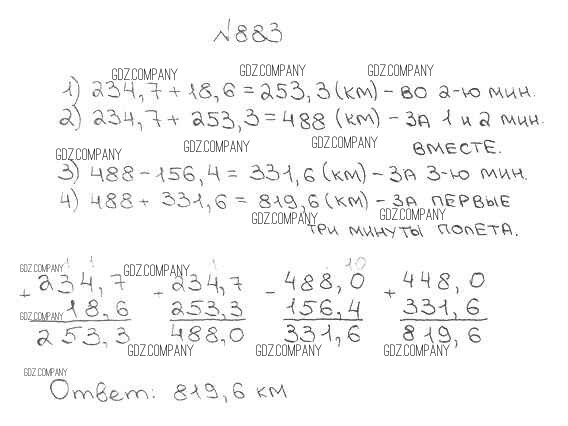 №883
GDZ.COMPANY GDZ.COMPANY GDZ.COMPANY
1) 234,7 + 18,6 = 253,3 (км) – во 2-ю мин.
2) 234,7 + 253,3 = 488 (км) – за 1 и 2 мин.
GDZ.COMPANY GDZ.COMPANY GDZ.COMPANY
вместе.
3) 488 – 156,4 = 331,6 (км) – за 3-ю мин.
4) 488 + 331,6 = 819,6 (км) – за первые
GDZ.COMPANY GDZ.COMPANY
три минуты полета.
GDZ.COMPANY GDZ.COMPANY
1 1 1 10
+ 234,7 + 234,7 – 488,0 + 448,0
GDZ.COMPANY
18,6 253,3 156,4 331,6
253,3 488,0 331,6 819,6
GDZ.COMPANY GDZ.COMPANY GDZ.COMPANY
GDZ.COMPANY
Ответ: 819,6 км